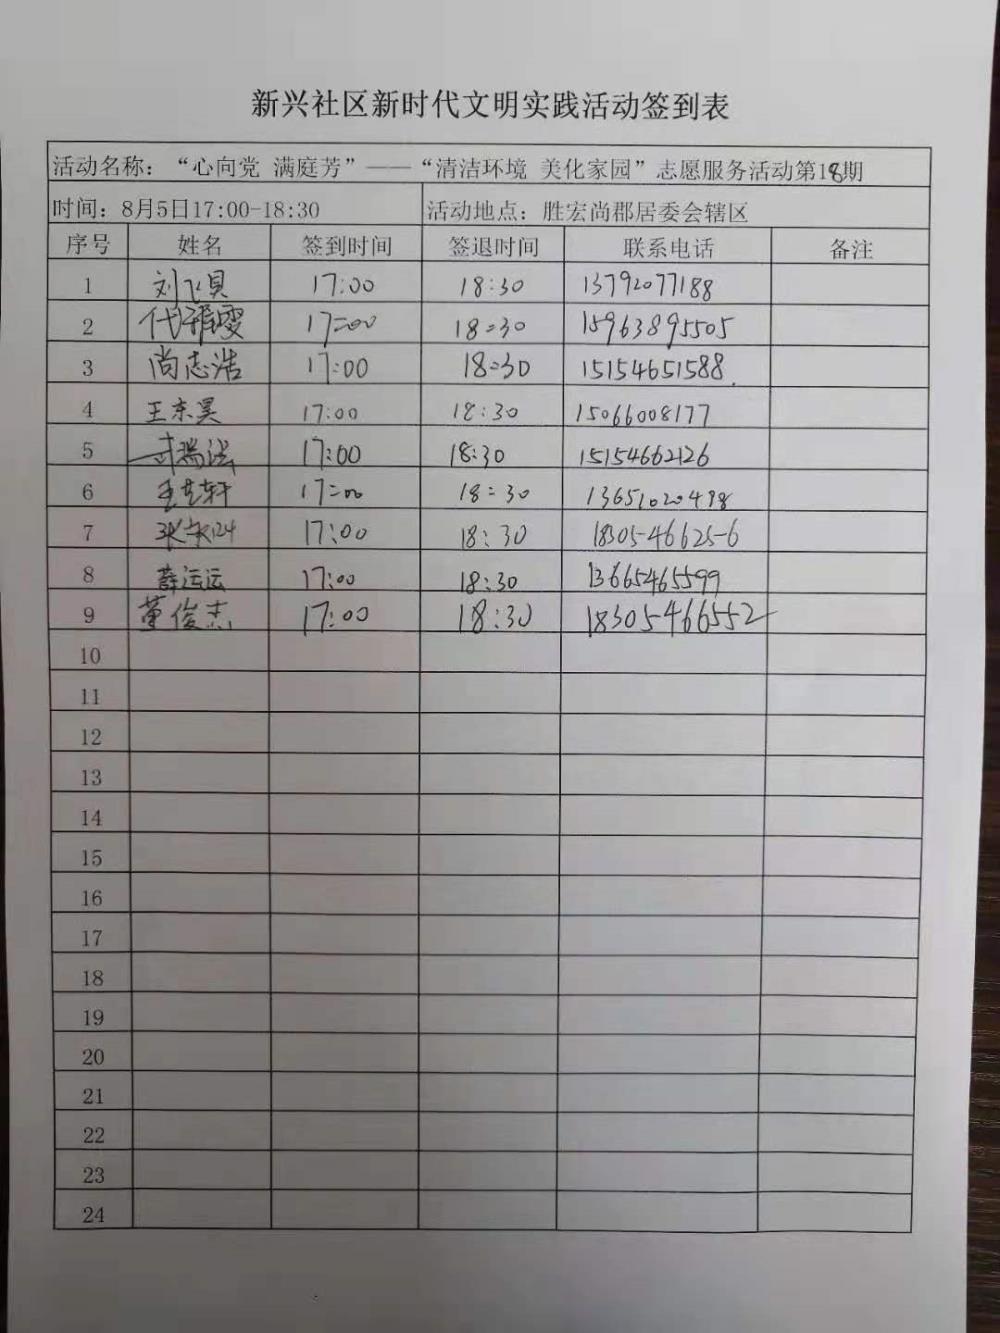 新兴社区新时代文明实践活动签到表
活动名称：“心向党 满庭芳”——“清洁环境 美化家园”志愿服务活动第18期
时间：8月5日17:00-18:30 活动地点：胜宏尚郡居委会辖区
序号 姓名 签到时间 签退时间 联系电话 备注
1 刘飞贝 17:00 18:30 13792077188
2 代雯 17:00 18:30 15963895505
3 尚志浩 17:00 18:30 15154651588
4 王东昊 17:00 18:30 15066008177
5 17:00 18:30 15154662126
6 王艺轩 17:00 18:30 13651020498
7 17:00 18:30 18305466256
8 薛运运 17:00 18:30 13665465599
9 董俊杰 17:00 18:30 18305466552
10
11
12
13
14
15
16
17
18
19
20
21
22
23
24